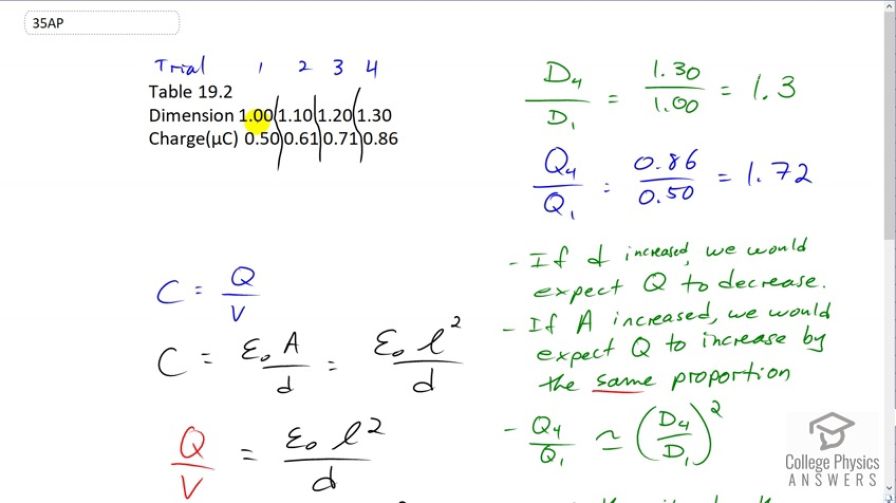 35AP
Trial 1 2 3 4
Table 19.2
Dimension 1.00 1.10 1.20 1.30
Charge(µC) 0.50 0.61 0.71 0.86
D₄/D₁ = 1.30/1.00 = 1.3
Q₄/Q₁ = 0.86/0.50 = 1.72
C = Q/V
C = ε₀ A/d = ε₀ l²/d
Q/V = ε₀ l²/d
- If d increased, we would
expect Q to decrease.
- If A increased, we would
expect Q to increase by
the same proportion
- Q₄/Q₁ ≃ (D₄/D₁)²
College Physics
ANSWERS